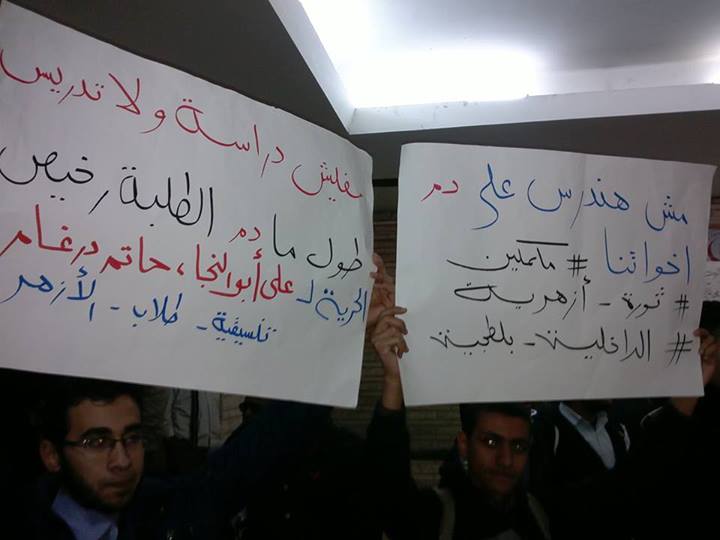 مفيش دراسة ولا تدريس
طول ما دم الطلبة رخيص
الحرية لـ على أبو النجا، حاتم درغام
تنسيقية - طلاب - الأزهر
مش هندرس على دم
اخواتنا # مكملين
# ثورة - أزهرية
# الداخلية - بلطجية